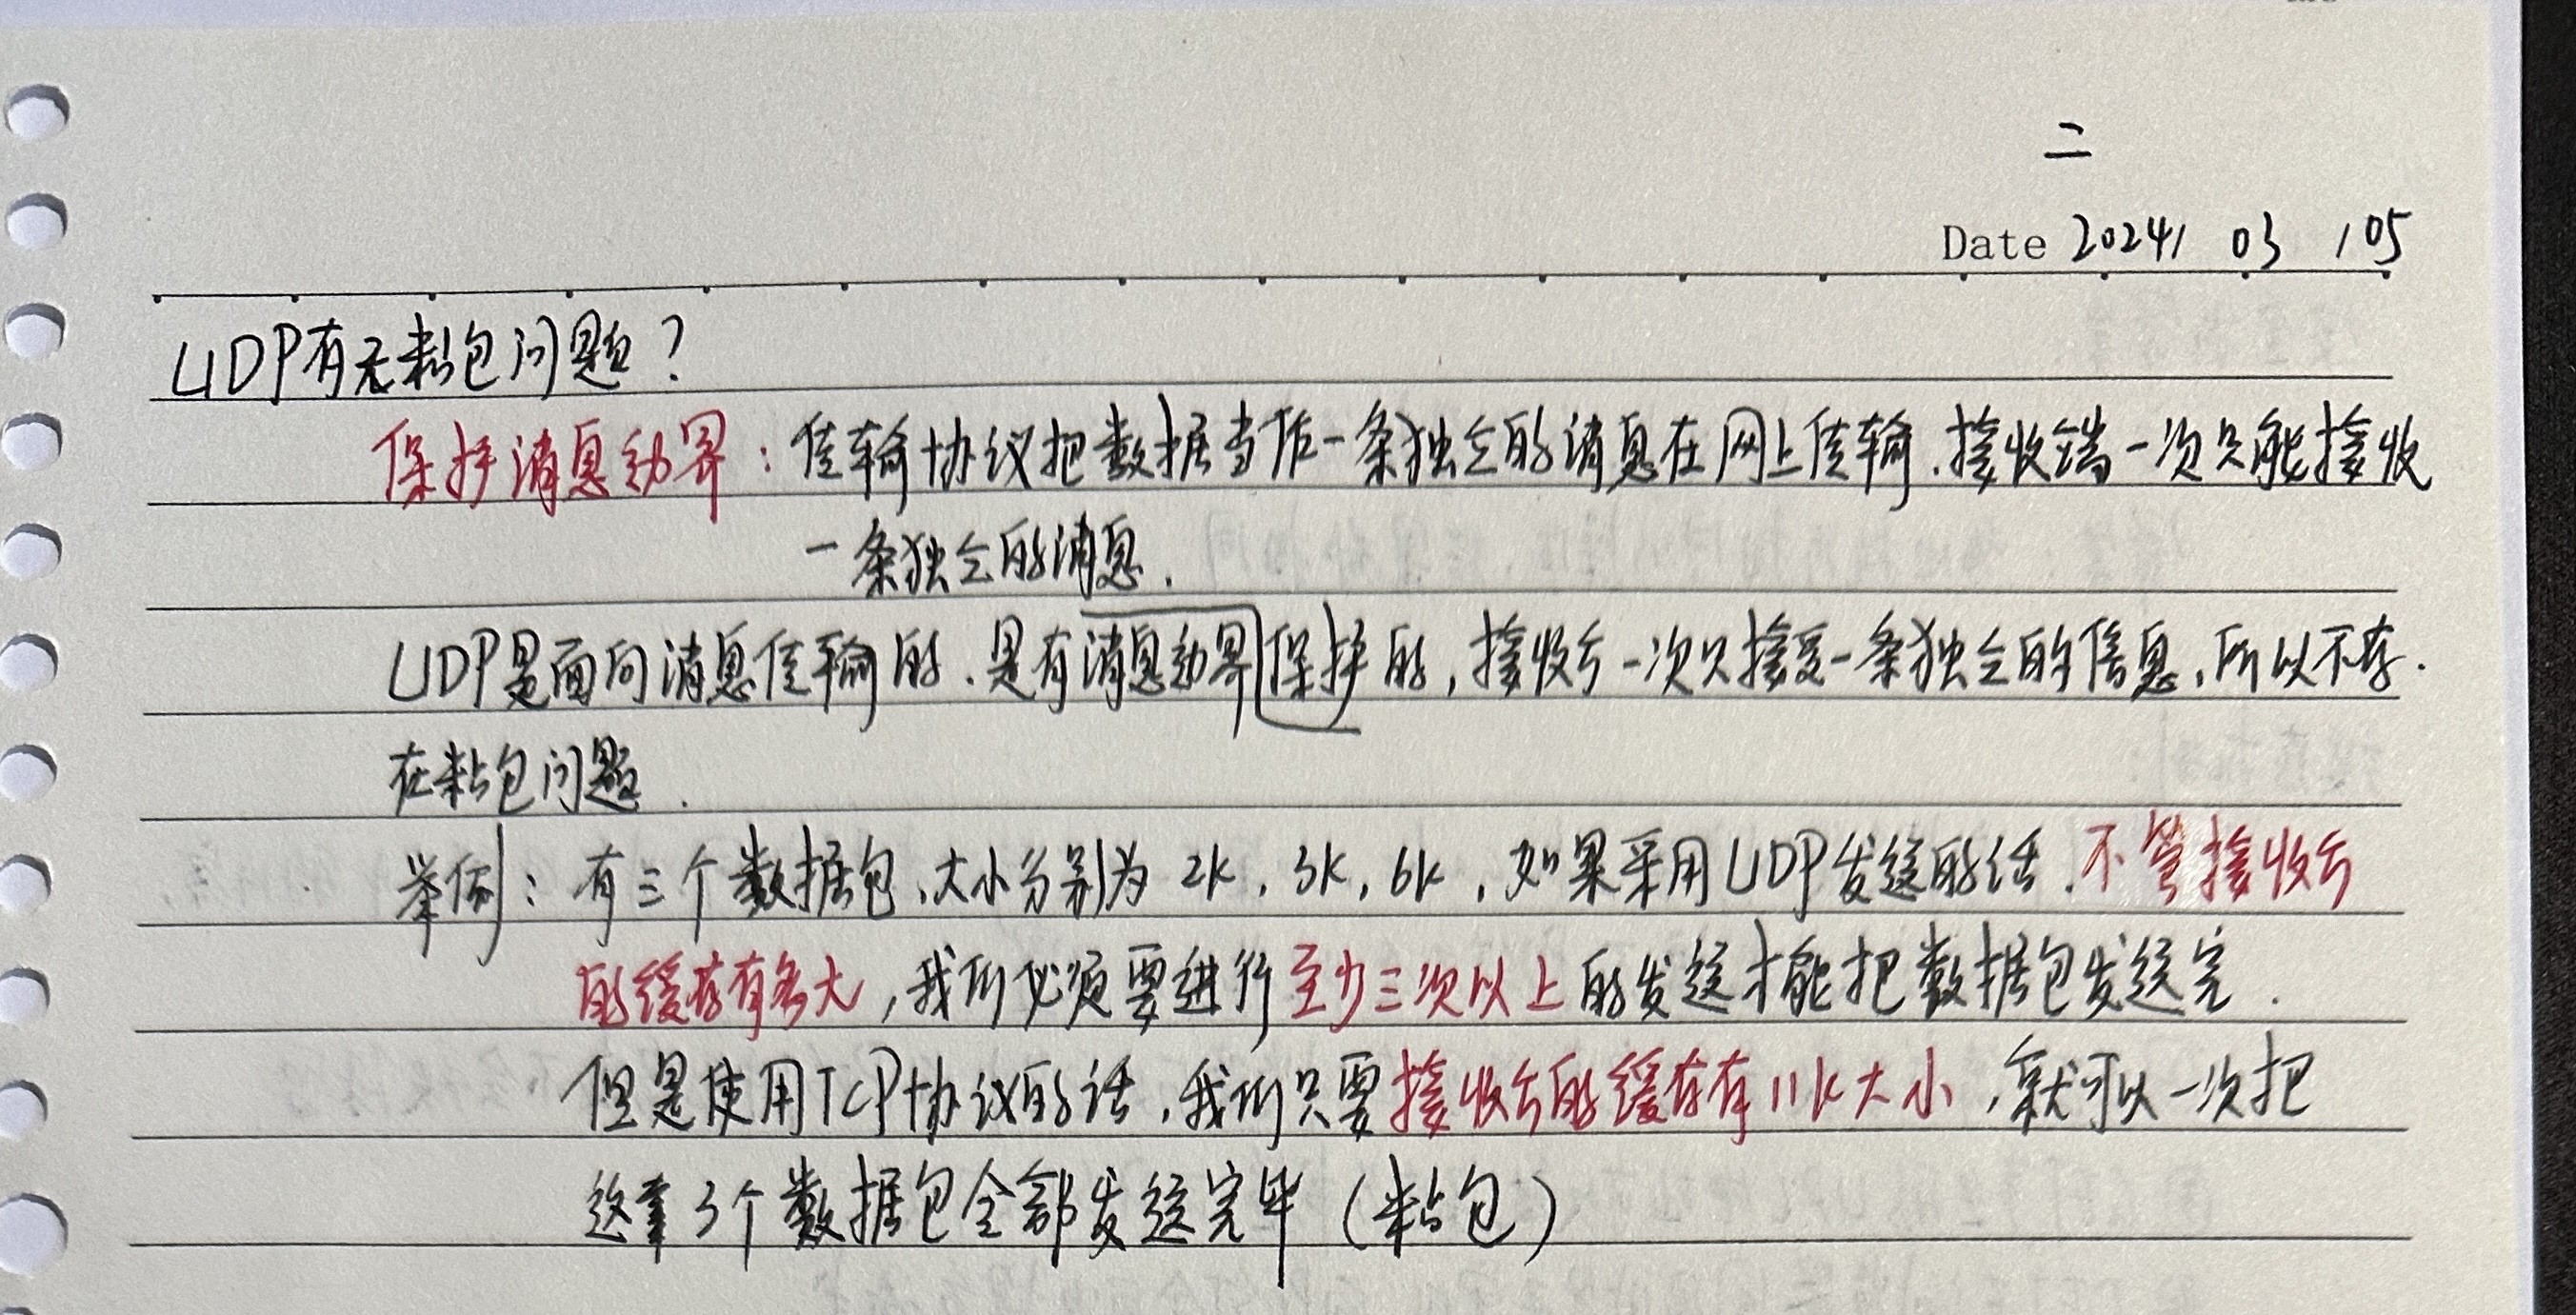 二
Date 2024/ 03 /05
UDP有无粘包问题？
保护消息边界：传输协议把数据当作一条独立的消息在网上传输，接收端一次只能接收
一条独立的消息.
UDP是面向消息传输的，是有消息边界保护的，接收方一次只接受一条独立的信息，所以不存
在粘包问题.
举例：有三个数据包，大小分别为 2k，3k，6k，如果采用UDP发送的话，不管接收方
的缓存有多大，我们必须要进行至少三次以上的发送才能把数据包发送完.
但是使用TCP协议的话，我们只要接收方的缓存有11k大小，就可以一次把
这3个数据包全部发送完毕（粘包）